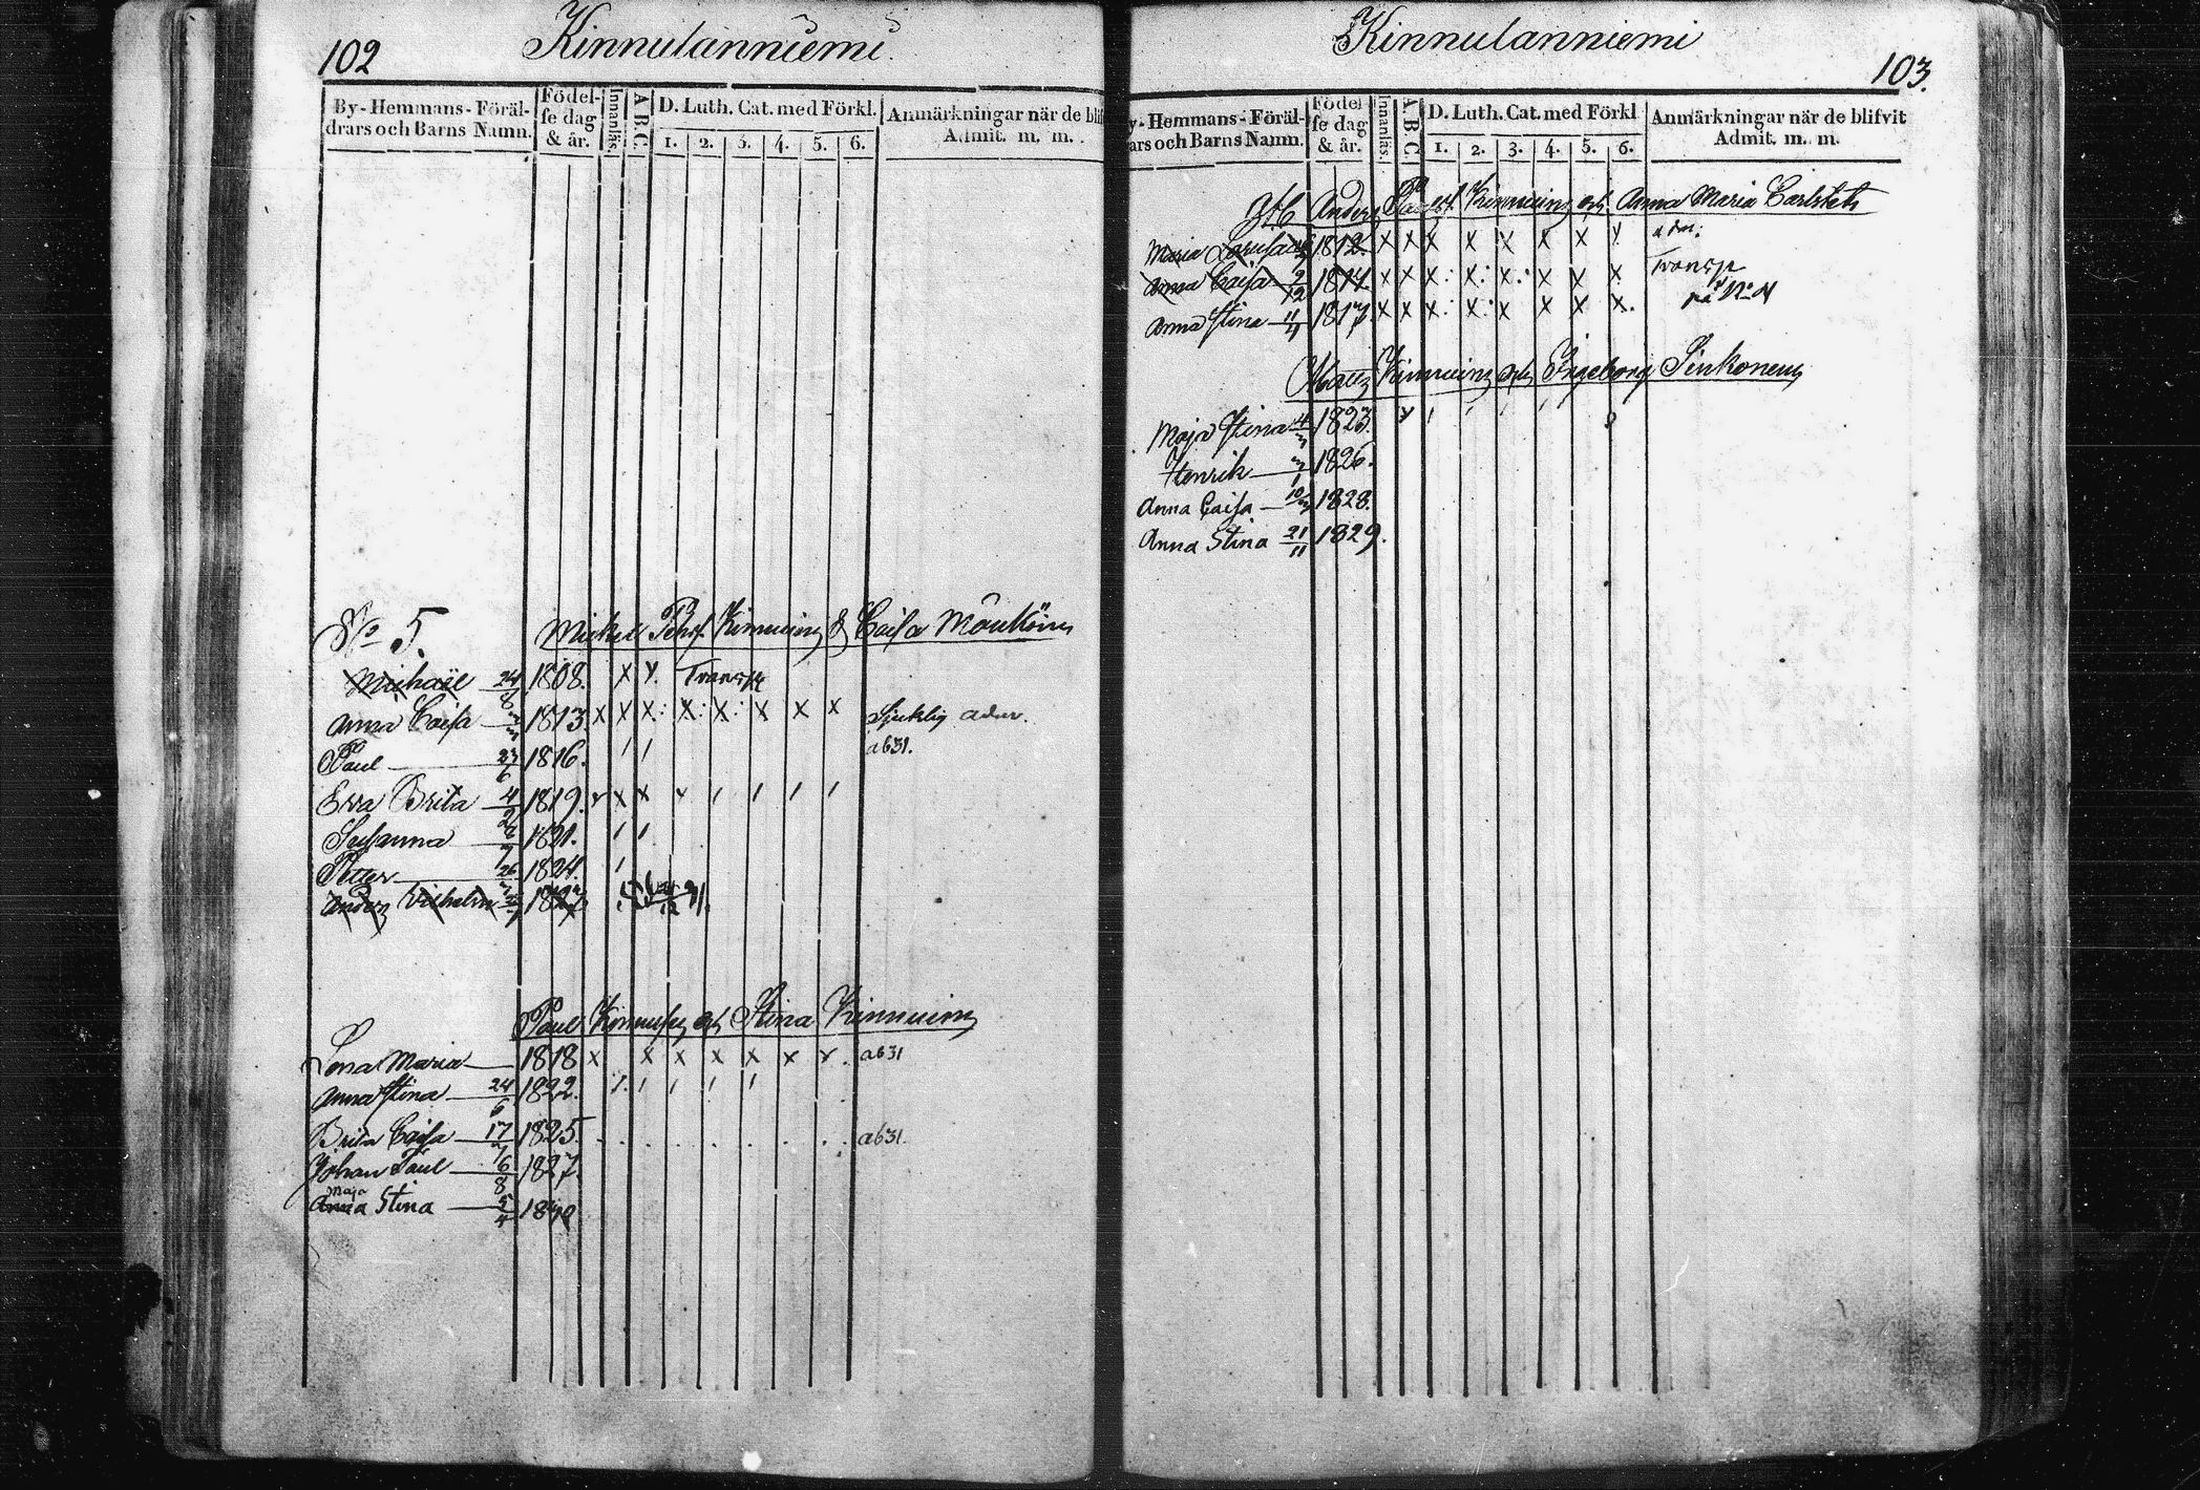 102
Kinnulanniemi.
By-Hemmans-Föräl-
drars och Barns Namn.
Födel-
se dag
& år.
Innanläs.
A B C
D. Luth. Cat. med Förkl.
1. 2. 3. 4. 5. 6.
Anmärkningar när de blif
Admit. m. m.
No 5. Michel Kinnuin & Caisa
Michaël 24/8 1808. X X. Transp
Anna Caisa 1813. X X X: X: X: X X X Sjuklig adm.
Paul 23/6 1816. / / a631.
Eva Brita 1819. x X X x / / / /
Susanna 1821. / /
Petter 1824. /
Anders Vilhelm 1827
Paul Kinnuin och Stina Kinnuin
Lena Maria 1818 X X X X X X X. a631
Anna Stina 24/6 1822.
Brita Caisa 17 1825. a631.
Johan Paul 6/8 1827.
Maja
Anna Stina 5/4
Kinnulanniemi
103.
y-Hemmans-Föräl-
ars och Barns Namn.
Födel-
se dag
& år.
Innanläs.
A B C
D. Luth. Cat. med Förkl
1. 2. 3. 4. 5. 6.
Anmärkningar när de blifvit
Admit. m. m.
Anders Kinnuin och Anna Maria
Maria 1812. X X X X X X X X adm:
Anna Caisa 9/12 1814. X X X: X: X: X X X Transp
på No 4
Anna Stina 11/4 1817. X X X: X: X X X X.
Kinnuin och Ingeborg Sinkonen
Maja Stina 1823.
Henrik 1826.
Anna Caisa 1828.
Anna Stina 21/11 1829.